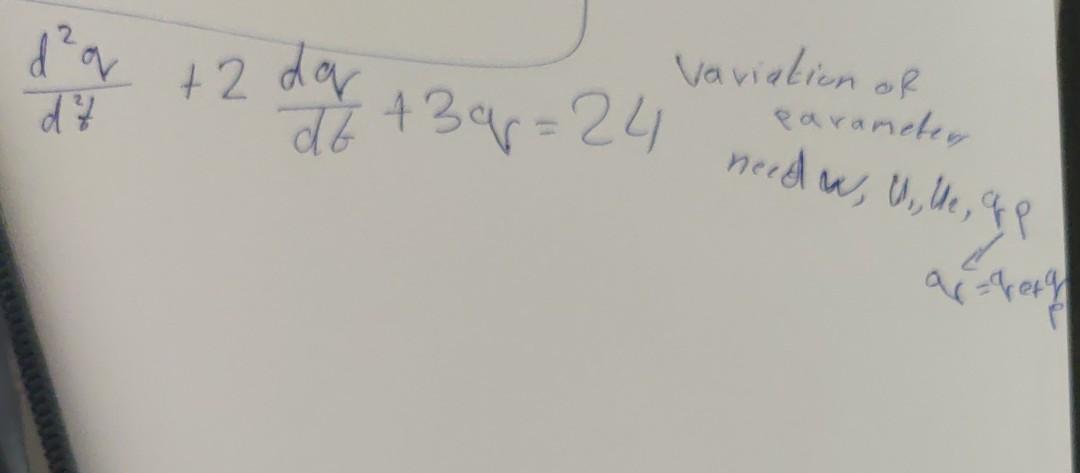 d²q/d²t + 2 dq/dt + 3q = 24
Variation of
parameter
need w, u₁, u₂, qp
q = qc + qp